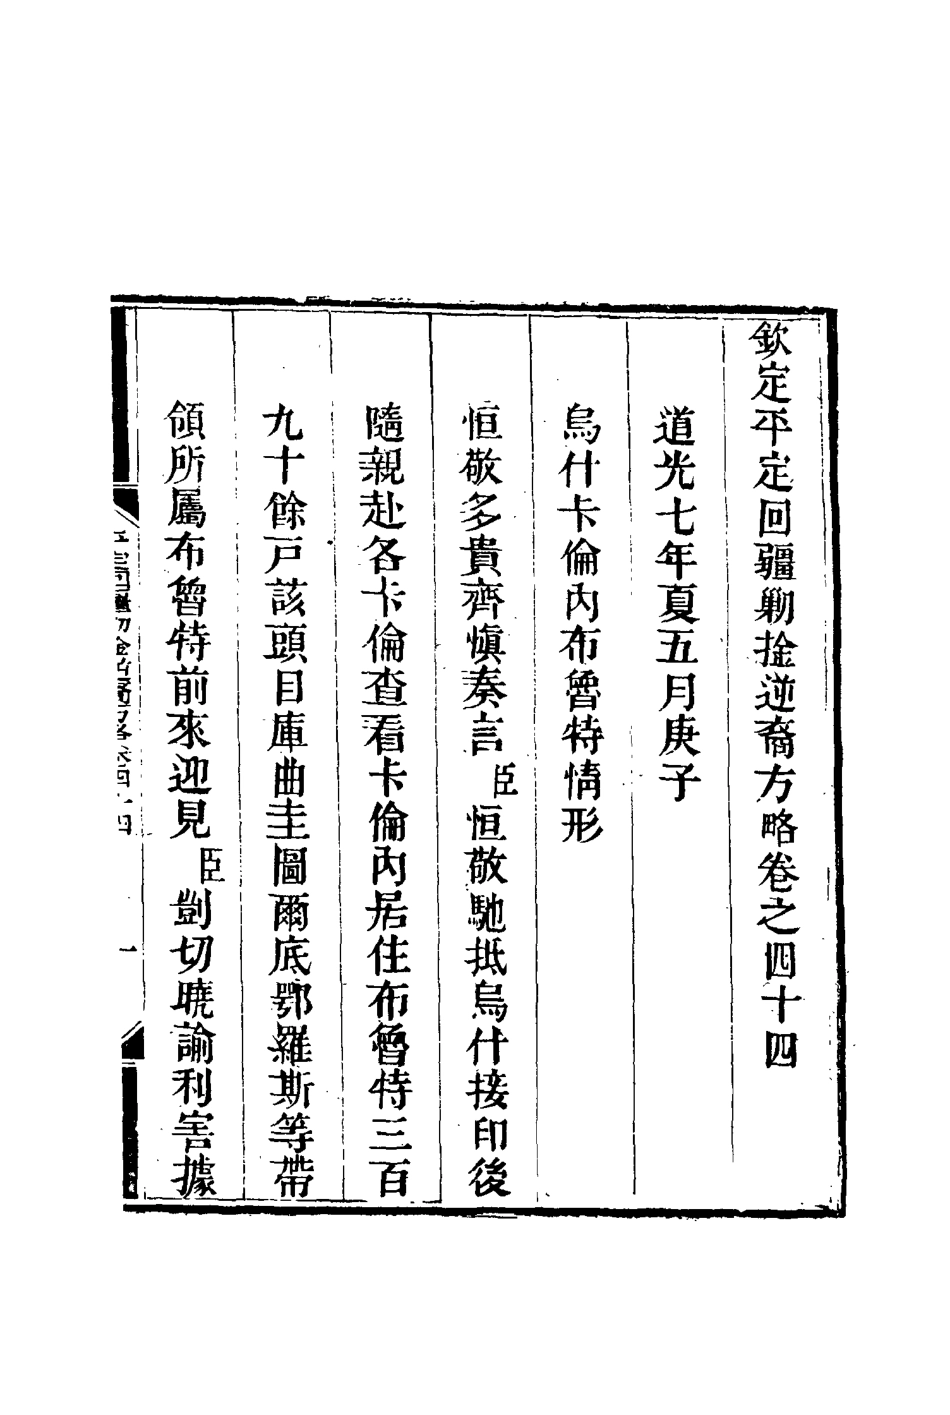 欽定平定回疆勦捦逆裔方略卷之四十四
道光七年夏五月庚子
烏什卡倫內布魯特情形
恒敬多貴齊慎奏言臣恒敬馳抵烏什接印後
隨親赴各卡倫查看卡倫內居住布魯特三百
九十餘戸該頭目庫曲圭圖爾底鄂羅斯等帶
領所屬布魯特前來迎見臣剴切曉諭利害據
一